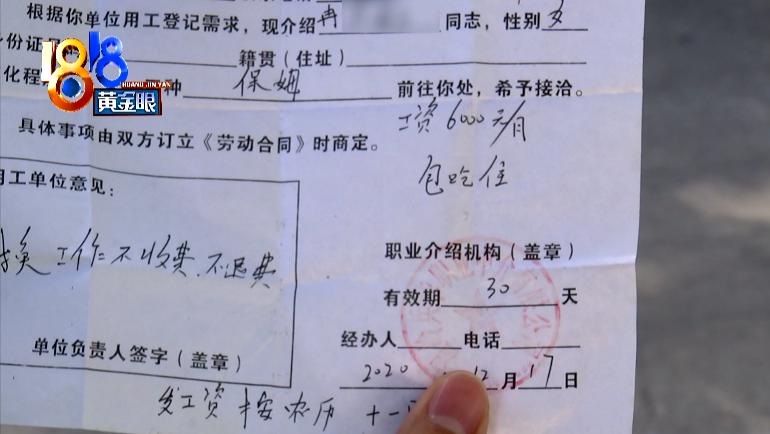 根据你单位用工登记需求，现介绍冉 同志，性别女
份证 籍贯（住址）
化程 种 保姆 前往你处，希予接洽。
1818
HUANG JIN YAN
黄金眼
具体事项由双方订立《劳动合同》时商定。
工资6000元/月
包吃住
用工单位意见：
换工作不收费，不退费
职业介绍机构（盖章）
有效期 30 天
单位负责人签字（盖章）
经办人 电话
2020 12月17日
发工资按农历 十一